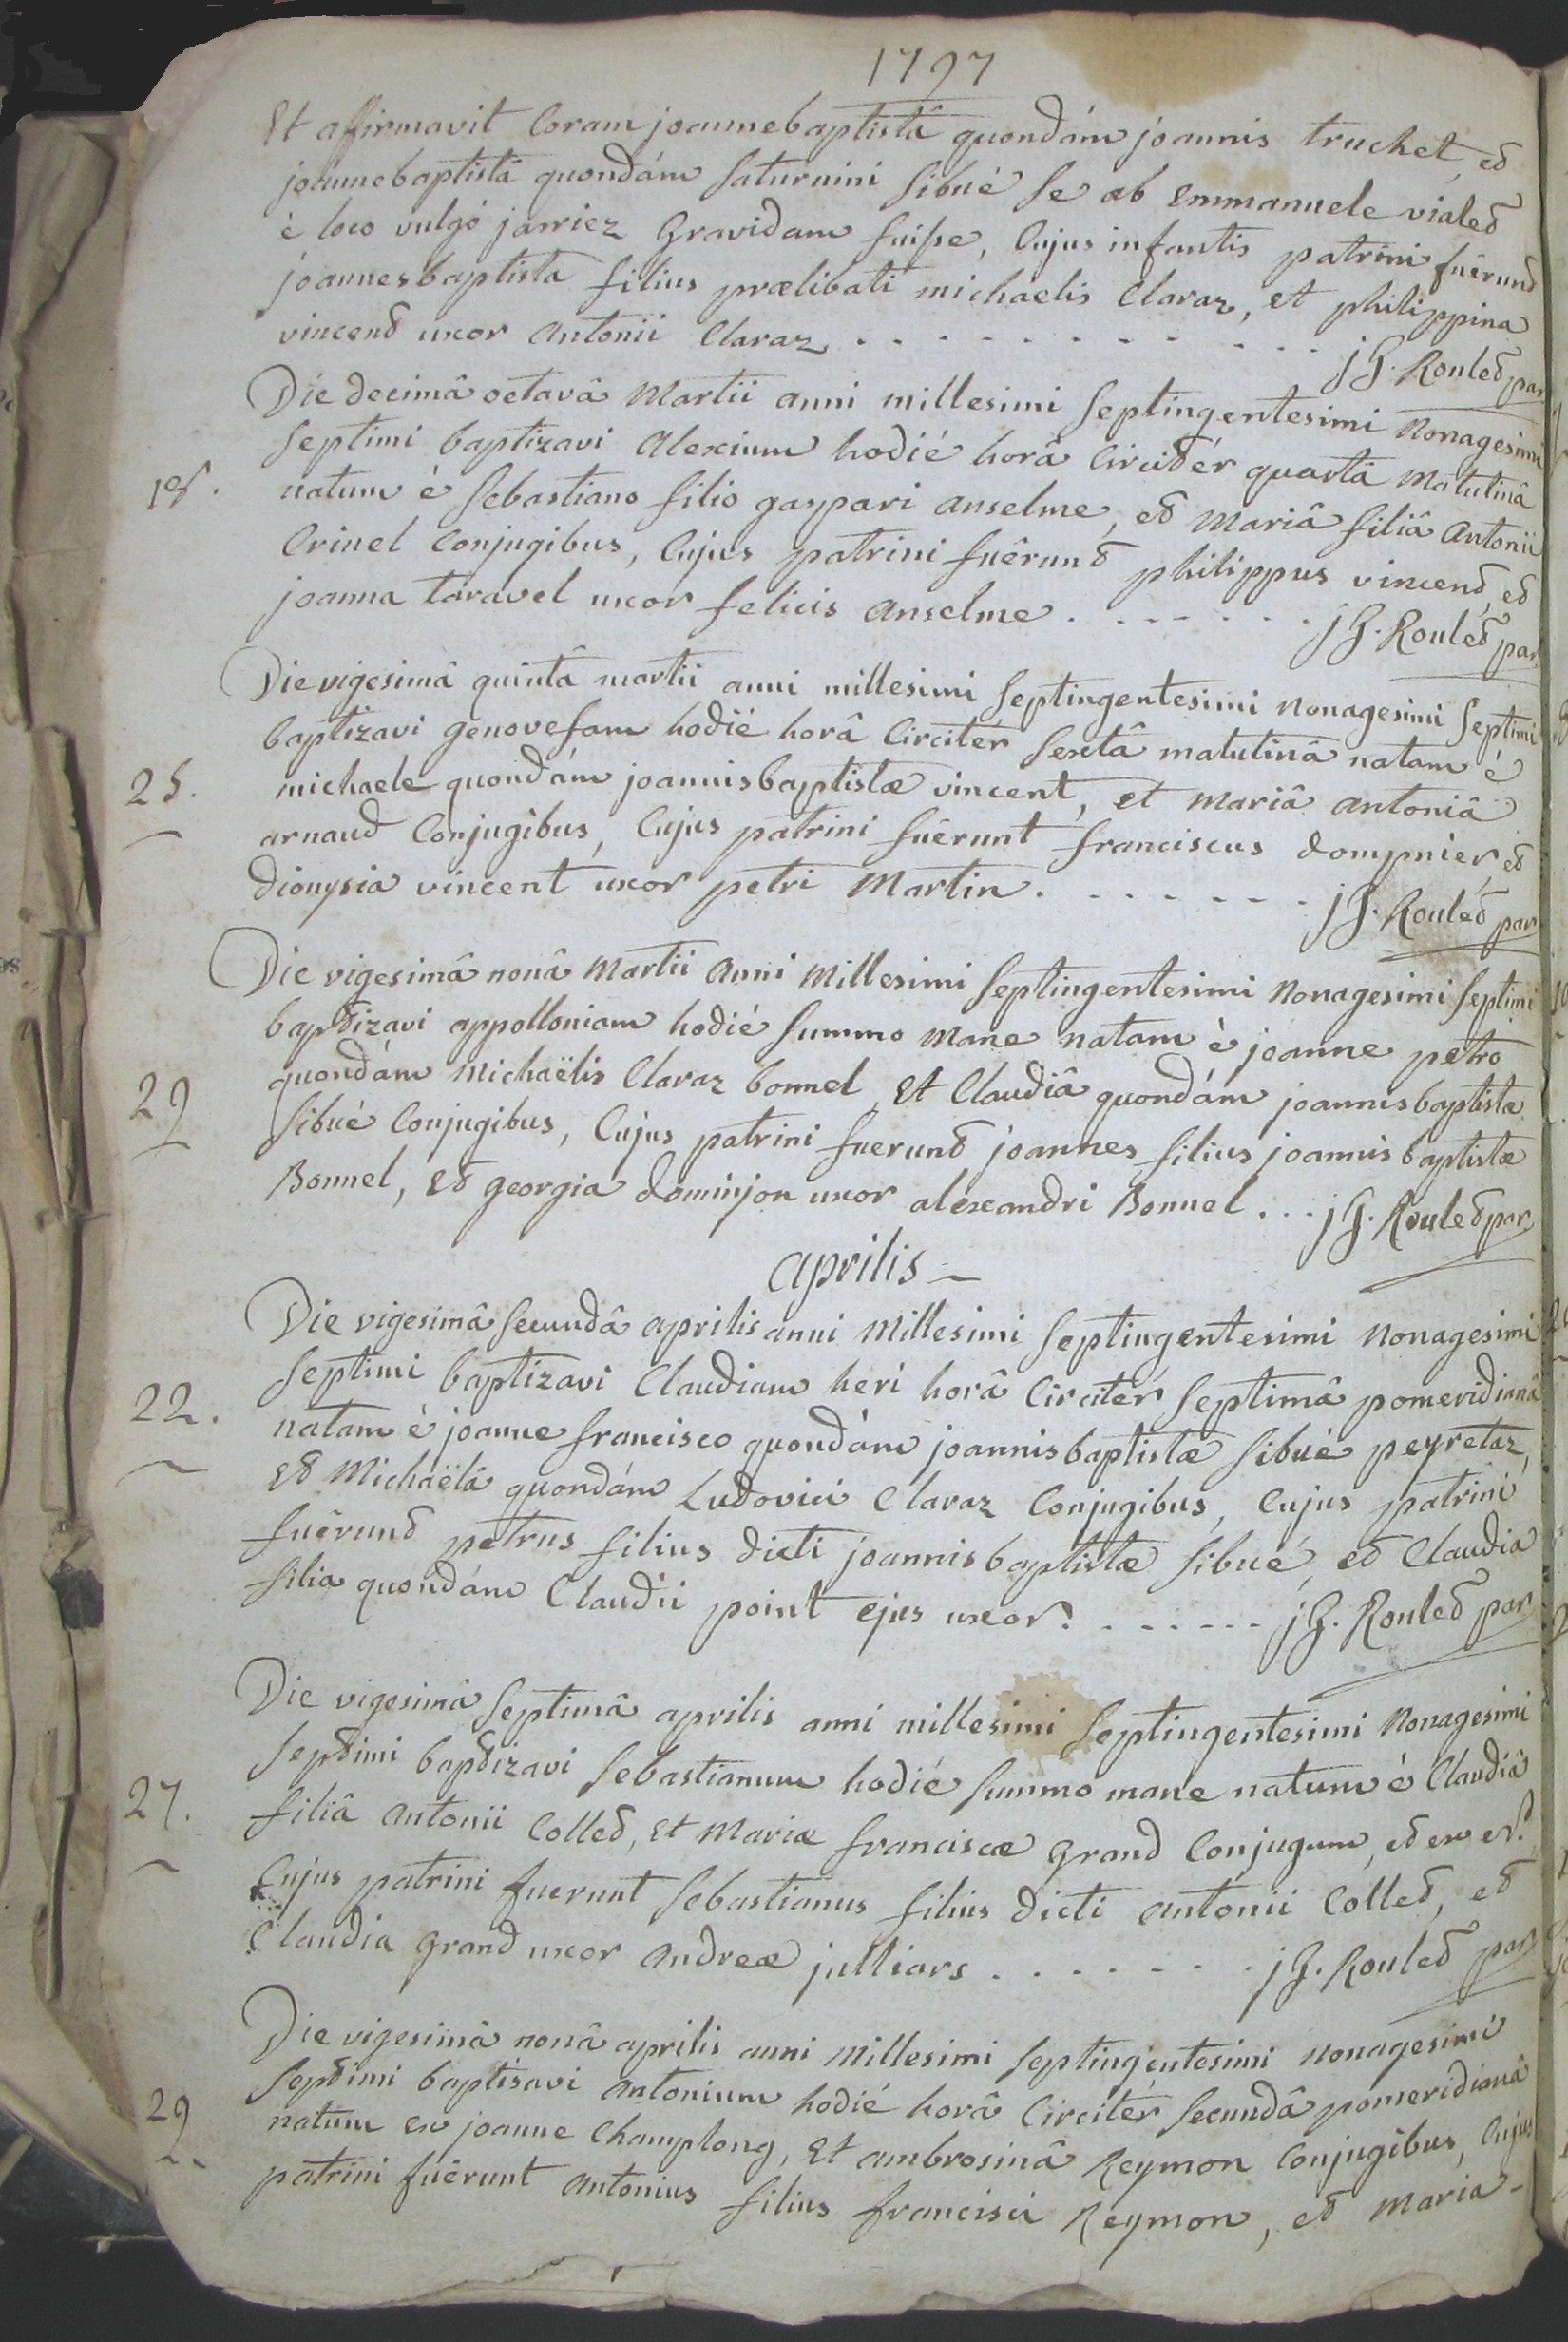 1797
Et affirmavit Coram joannebaptistâ quondám joannis truchet, et
joannebaptistâ quondám Saturnini Sibué Se ab Emmanuele vialet
è loco vulgó jarriez Gravidam fuisse, Cujus infantis patrini fuêrunt
joannesbaptista filius prælibati michaelis Claraz, et philippina
vincent uxor antonii Claraz . . . . . . . . . . . j G. Roulet par
Die decimâ octavâ Martii anni millesimi Septingentesimi Nonagesimi
Septimi baptizavi Alexium hodié horâ Circitér quartâ Matutinâ
18. natum è Sebastiano filio gaspari anselme, et Mariâ filiâ Antonii
Crinel Conjugibus, Cujus patrini fuêrunt philippus vincent, et
joanna taravel uxor felicis anselme . . . . . . . j G. Roulet par
Die vigesimâ quintâ martii anni millesimi Septingentesimi Nonagesimi Septimi
baptizavi genovefam hodié horâ Circitér Sextâ matutinâ natam é
25. michaele quondám joannisbaptistæ vincent, et mariâ antoniâ
arnaud Conjugibus, Cujus patrini fuêrunt franciscus dompnier, et
dionysia vincent uxor petri Martin . . . . . . . j G. Roulet par
Die vigesimâ nonâ Martii Anni Millesimi Septingentesimi Nonagesimi Septimi
baptizavi appolloniam hodié Summo Mane natam è joanne petro
29 quondám Michaëlis Claraz bonnel, Et Claudiâ quondám joannisbaptistæ
Sibué Conjugibus, Cujus patrini fuerunt joannes filius joannis baptistæ
Bonnel, et georgia dominjon uxor alexandri Bonnel . . . j G. Roulet par
Aprilis
Die vigesimâ Secundâ aprilis anni Millesimi Septingentesimi Nonagesimi
Septimi baptizavi Claudiam heri horâ Circitér Septimâ pomeridianâ
22. natam è joanne francisco quondám joannisbaptistæ Sibué peyretaz,
et Michaëlâ quondám Ludovici Claraz Conjugibus, Cujus patrini
fuêrunt petrus filius dicti joannisbaptistæ Sibué, et Claudia
filia quondám Claudii point ejus uxor . . . . . . . j G. Roulet par
Die vigesimâ Septimâ aprilis anni millesimi Septingentesimi Nonagesimi
Septimi baptizavi Sebastianum hodié Summo mane natum è Claudiâ
27. filiâ antonii Collet, et Mariæ franciscæ Grand Conjugum, et ex
Cujus patrini fuerunt Sebastianus filius dicti antonii Collet, et
Claudia grand uxor andreæ julliars . . . . . . . j G. Roulet par
Die vigesimâ nonâ aprilis anni Millesimi Septingentesimi Nonagesimi
Septimi baptisavi Antonium hodié horâ Circitér Secundâ pomeridianâ
29 natum ex joanne Champlong, Et ambrosinâ Reymon Conjugibus, Cujus
patrini fuêrunt antonius filius francisci Reymon, et Maria-